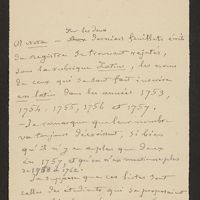 Sur les deux
(1) Nota — Aux derniers feuillets écrits
du registre se trouvent rejetés,
sous la rubrique Latins, les noms
de ceux qui se sont fait inscrire
en latin dans les années 1753,
1754, 1755, 1756 et 1757.
Je remarque que leur nombre
va toujours décroissant, si bien
qu'il n'y en a plus que deux
en 1757, et qu'on n'en mentionne plus
de 1758 à 1762.
Je suppose que ces listes sont
celles des étudiants qui se proposaient